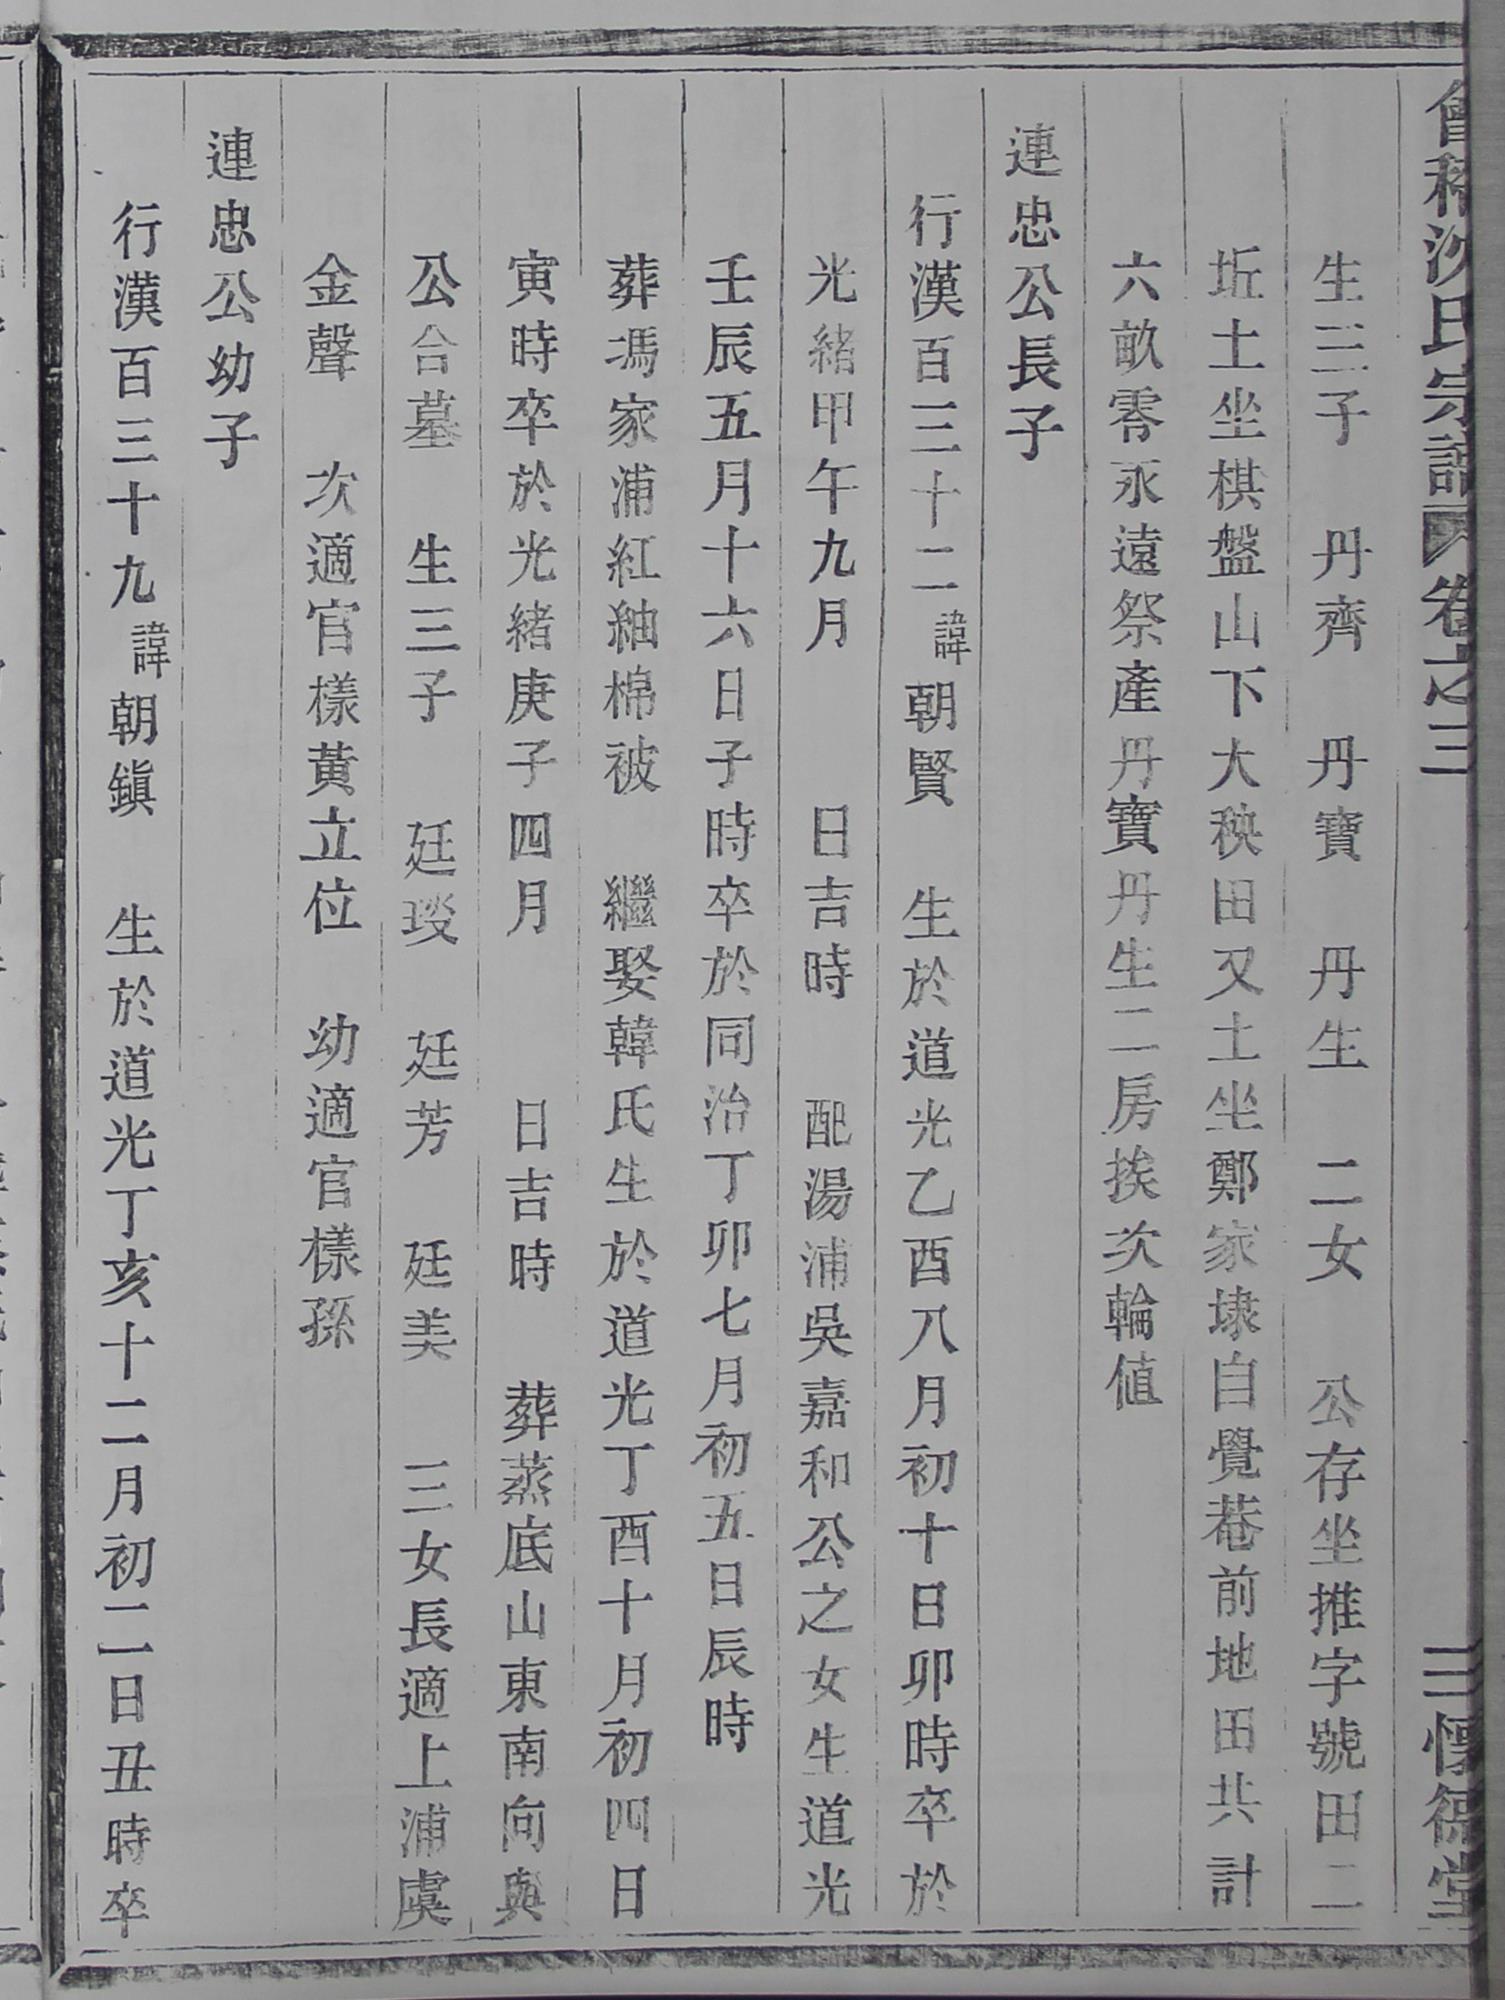 會稽沈氏宗譜 卷之三 三 懷德堂
生三子 丹齊 丹寶 丹生 二女 公存坐推字號田二
坵土坐棋盤山下大秧田又土坐鄭家埭自覺菴前地田共計
六畝零永遠祭產丹寶丹生二房挨次輪值
連忠公長子
行漢百三十二諱朝賢 生於道光乙酉八月初十日卯時卒於
光緒甲午九月 日吉時 配湯浦吳嘉和公之女生道光
壬辰五月十六日子時卒於同治丁卯七月初五日辰時
葬馮家浦紅紬棉被 繼娶韓氏生於道光丁酉十月初四日
寅時卒於光緒庚子四月 日吉時 葬蒸底山東南向與
公合墓 生三子 廷琰 廷芳 廷美 三女長適上浦虞
金聲 次適官樣黃立位 幼適官樣孫
連忠公幼子
行漢百三十九諱朝鎮 生於道光丁亥十二月初二日丑時卒